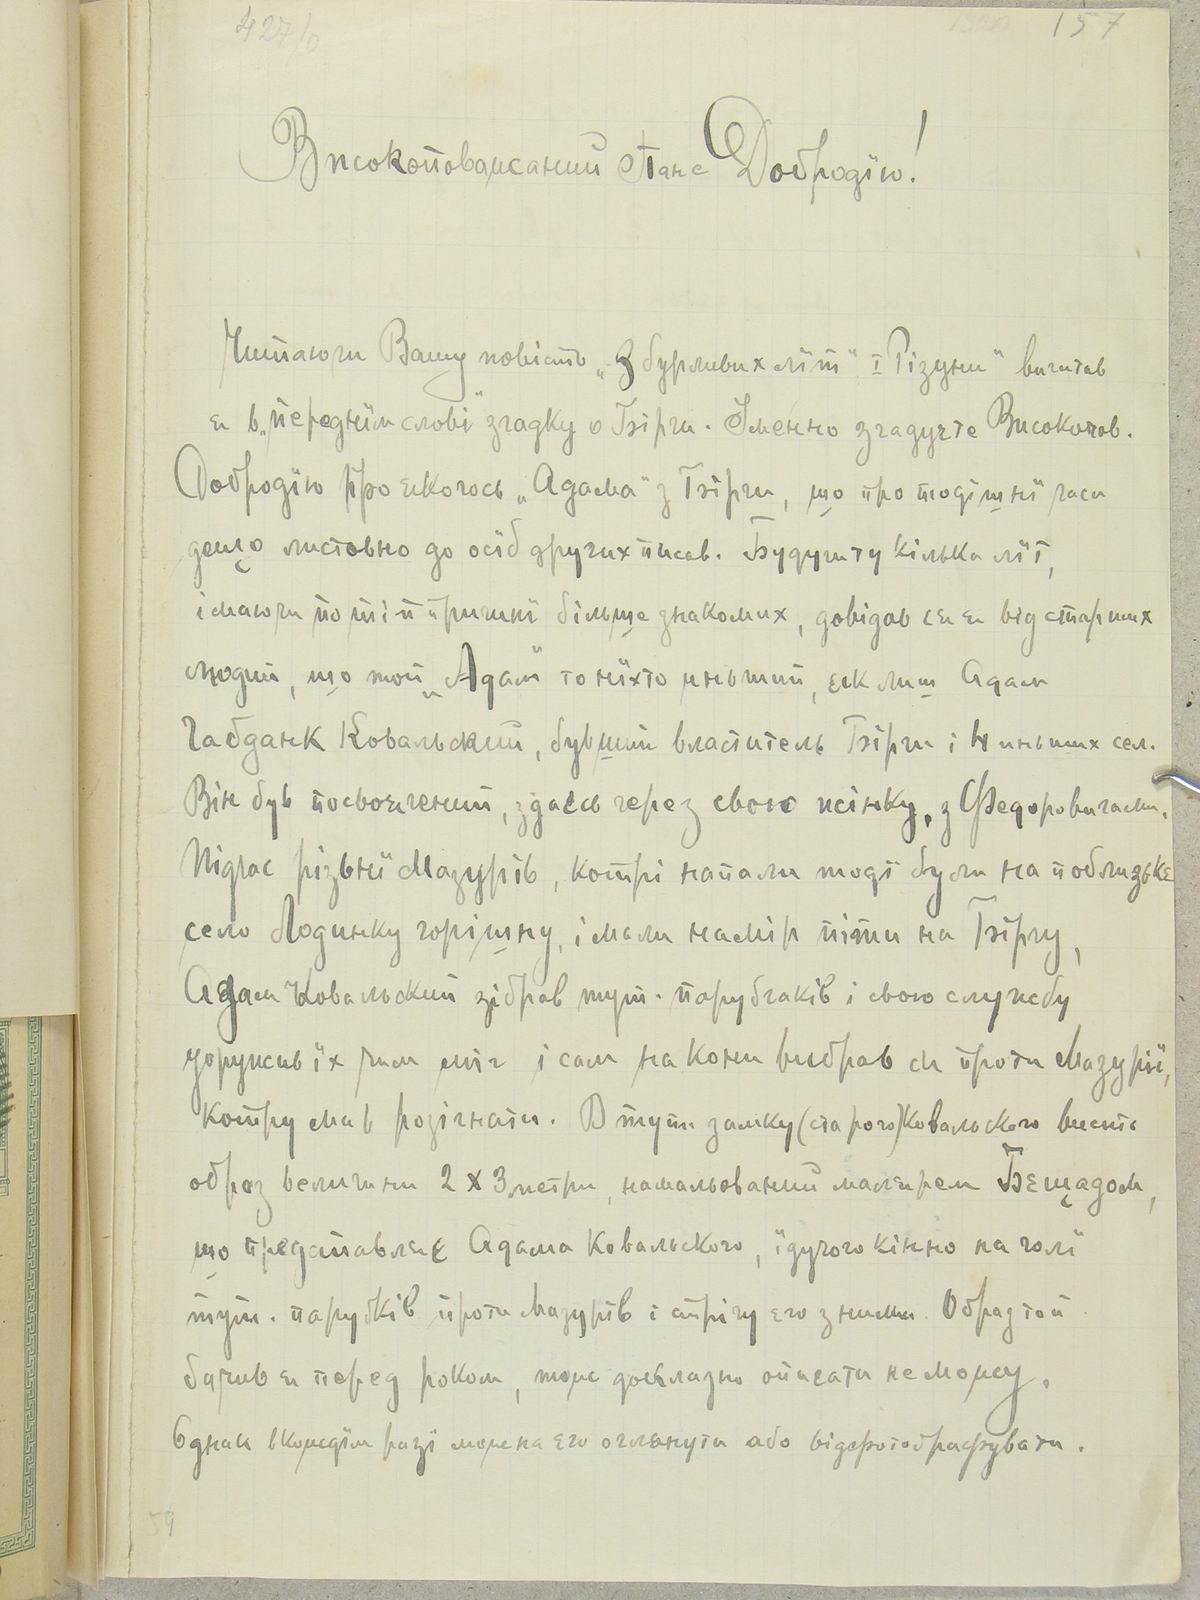 427/
157
Високоповажаний Пане Добродїю!
Читаючи Вашу повість „З бурливих лїт" і „Різуни" вичитав
я в „переднїм слові" згадку о Бірчи. Іменно згадуєте Високопов.
Добродїю про якогось „Адама" з Бірчи, що про тодїшнї часи
дещо листовно до осіб других писав. Будучи ту кілька лїт,
і маючи по тій причинї більше знакомих, довідав ся я від старших
людий, що той „Адам" то нїхто иньший, як лиш Адам
Габданк Ковальский, бувший властитель Бірчи і 4 иньших сел.
Він був посвоячений, здаєсь через свою жінку, з Федоровичами.
Підчас різьнї Мазурів, котрі напали тодї були на поблизьке
село Лодинку горішну, і мали намір піти на Бірчу,
Адам Ковальский зібрав тут. парубчаків і свою службу
узружив їх чим міг і сам на кони вибрав ся проти Мазурів,
котру мав розігнати. В тут. замку (старого) Ковальского висить
образ величини 2 x 3 метри, намальований малярем Бещадом,
що представляє Адама Ковальского, їдучого кінно на чолї
тут. парубків проти Мазурів і стрічу єго з ними. Образ той
бачив я перед роком, тож докладно описати не можу.
Однак в кождїм разї можна єго оглянути або відфотоґрафувати.
59